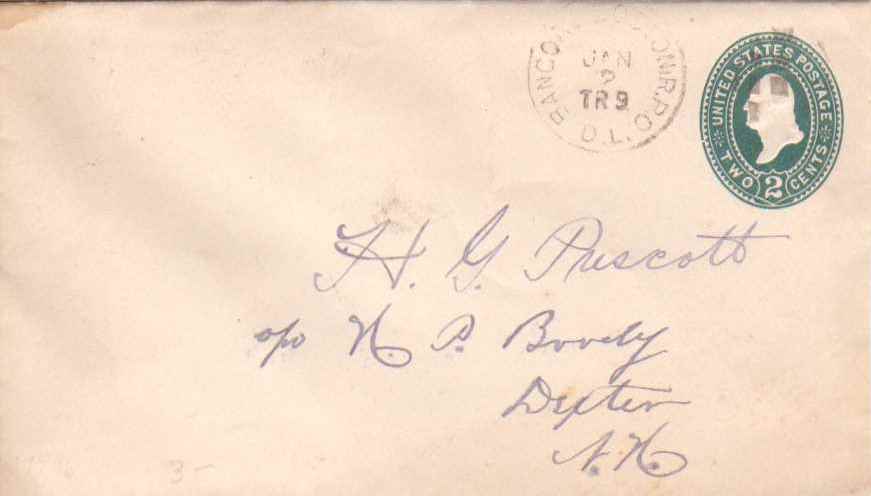 BANGOR
JAN
2
TR 9
R.P.O.
D.L.
UNITED STATES POSTAGE
TWO 2 CENTS
H. G. Prescott
H. P.
Dexter
N.H.
3-